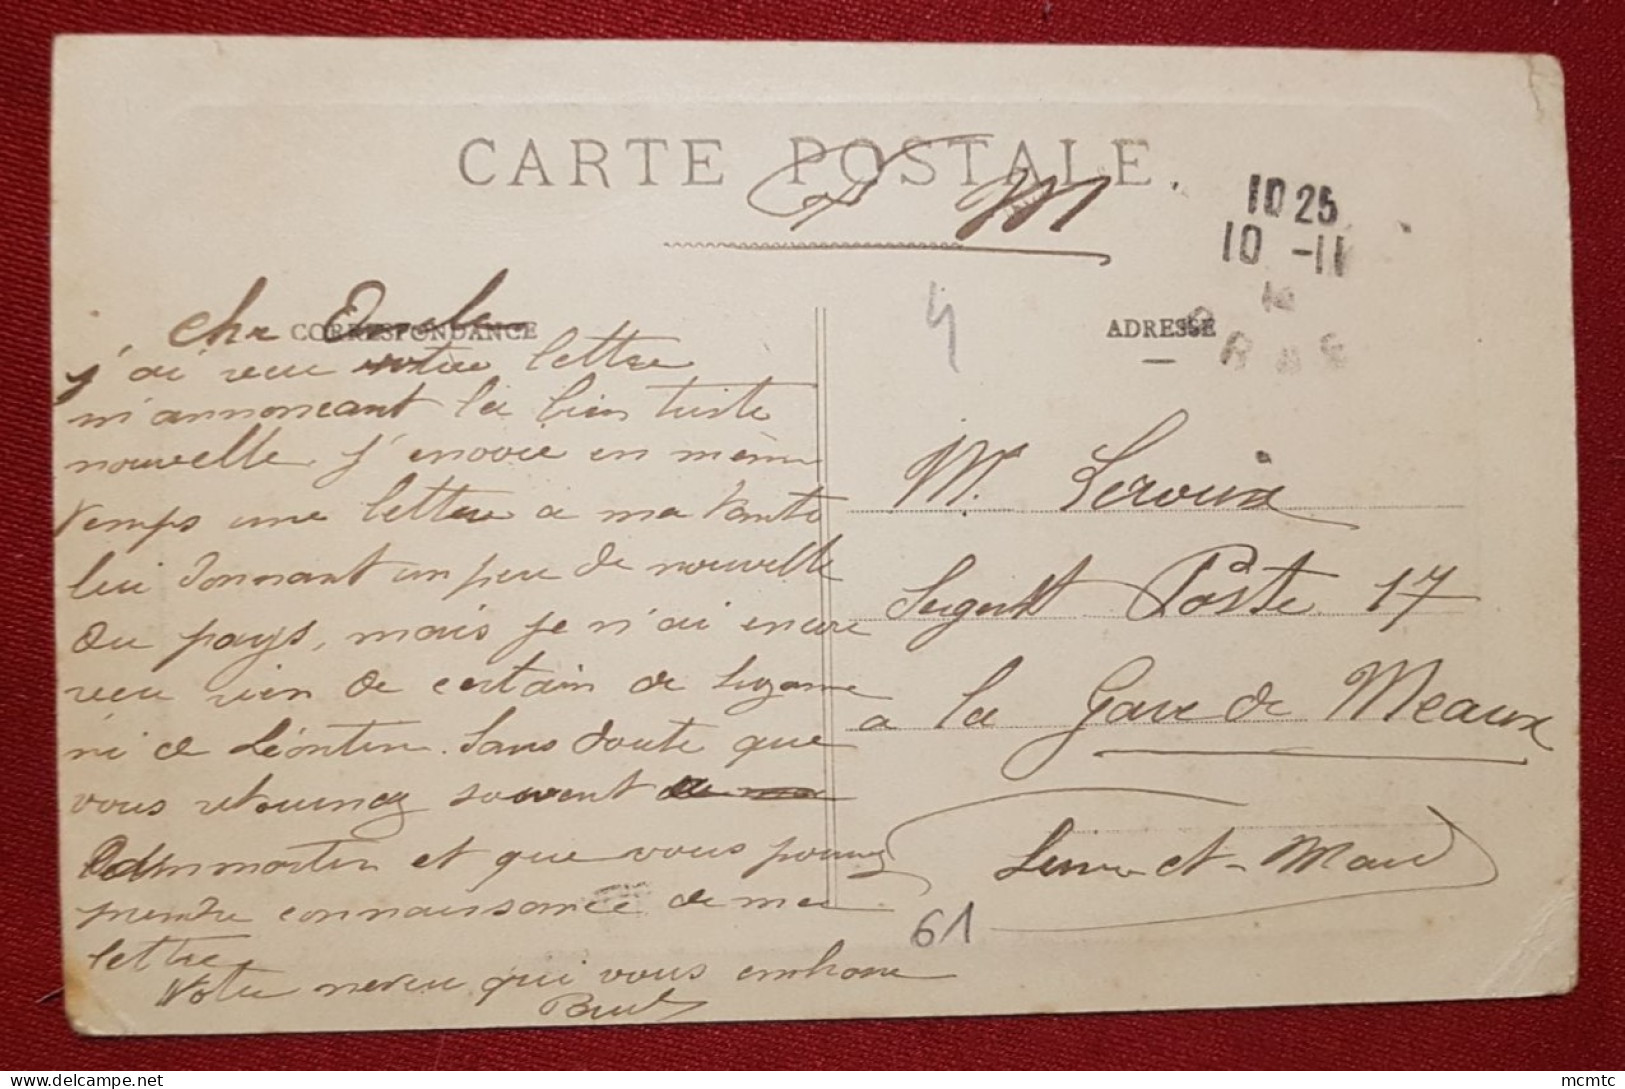 CARTE POSTALE
F M
10 25
10 -11
CORRESPONDANCE
ADRESSE
cher Oncle
j'ai reçu votre lettre
m'annonçant la bien triste
nouvelle, j'envoie en même
temps une lettre a ma tante
lui donnant un peu de nouvelle
du pays, mais je n'ai encore
reçu rien de certain de Suzanne
ni de Léontin. Sans doute que
vous retournez souvent
Dammartin et que vous pourrez
prendre connaissance de ma
lettre.
Votre neveu qui vous embrasse
4
Mr Leroux
Sergent Poste 17
a la Gare de Meaux
Seine-et-Marne
61
mcmtc